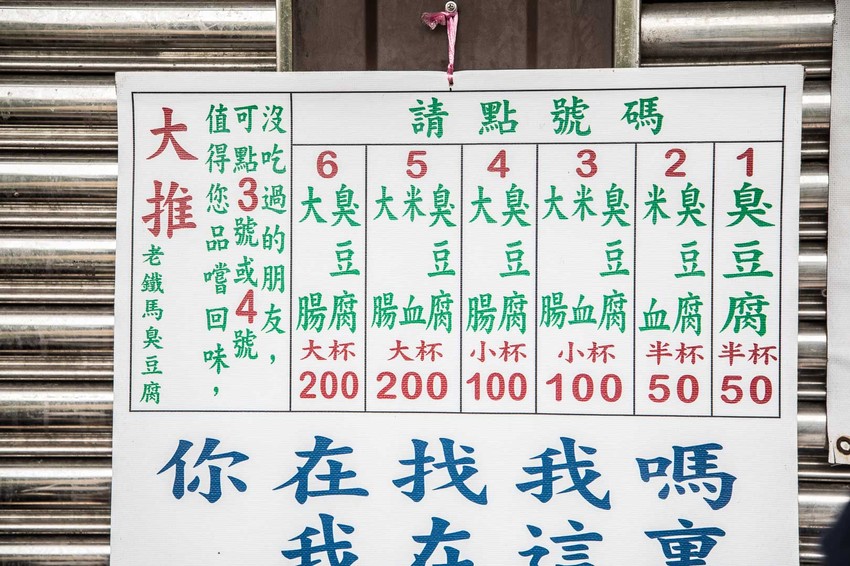 請點號碼
1
臭豆腐
半杯
50
2
臭豆腐
米血
半杯
50
3
臭豆腐
米血
大腸
小杯
100
4
臭豆腐
大腸
小杯
100
5
臭豆腐
米血
大腸
大杯
200
6
臭豆腐
大腸
大杯
200
沒吃過的朋友，
可點3號或4號
值得您品嚐回味，
大推
老鐵馬臭豆腐
你在找我嗎
我在這裏